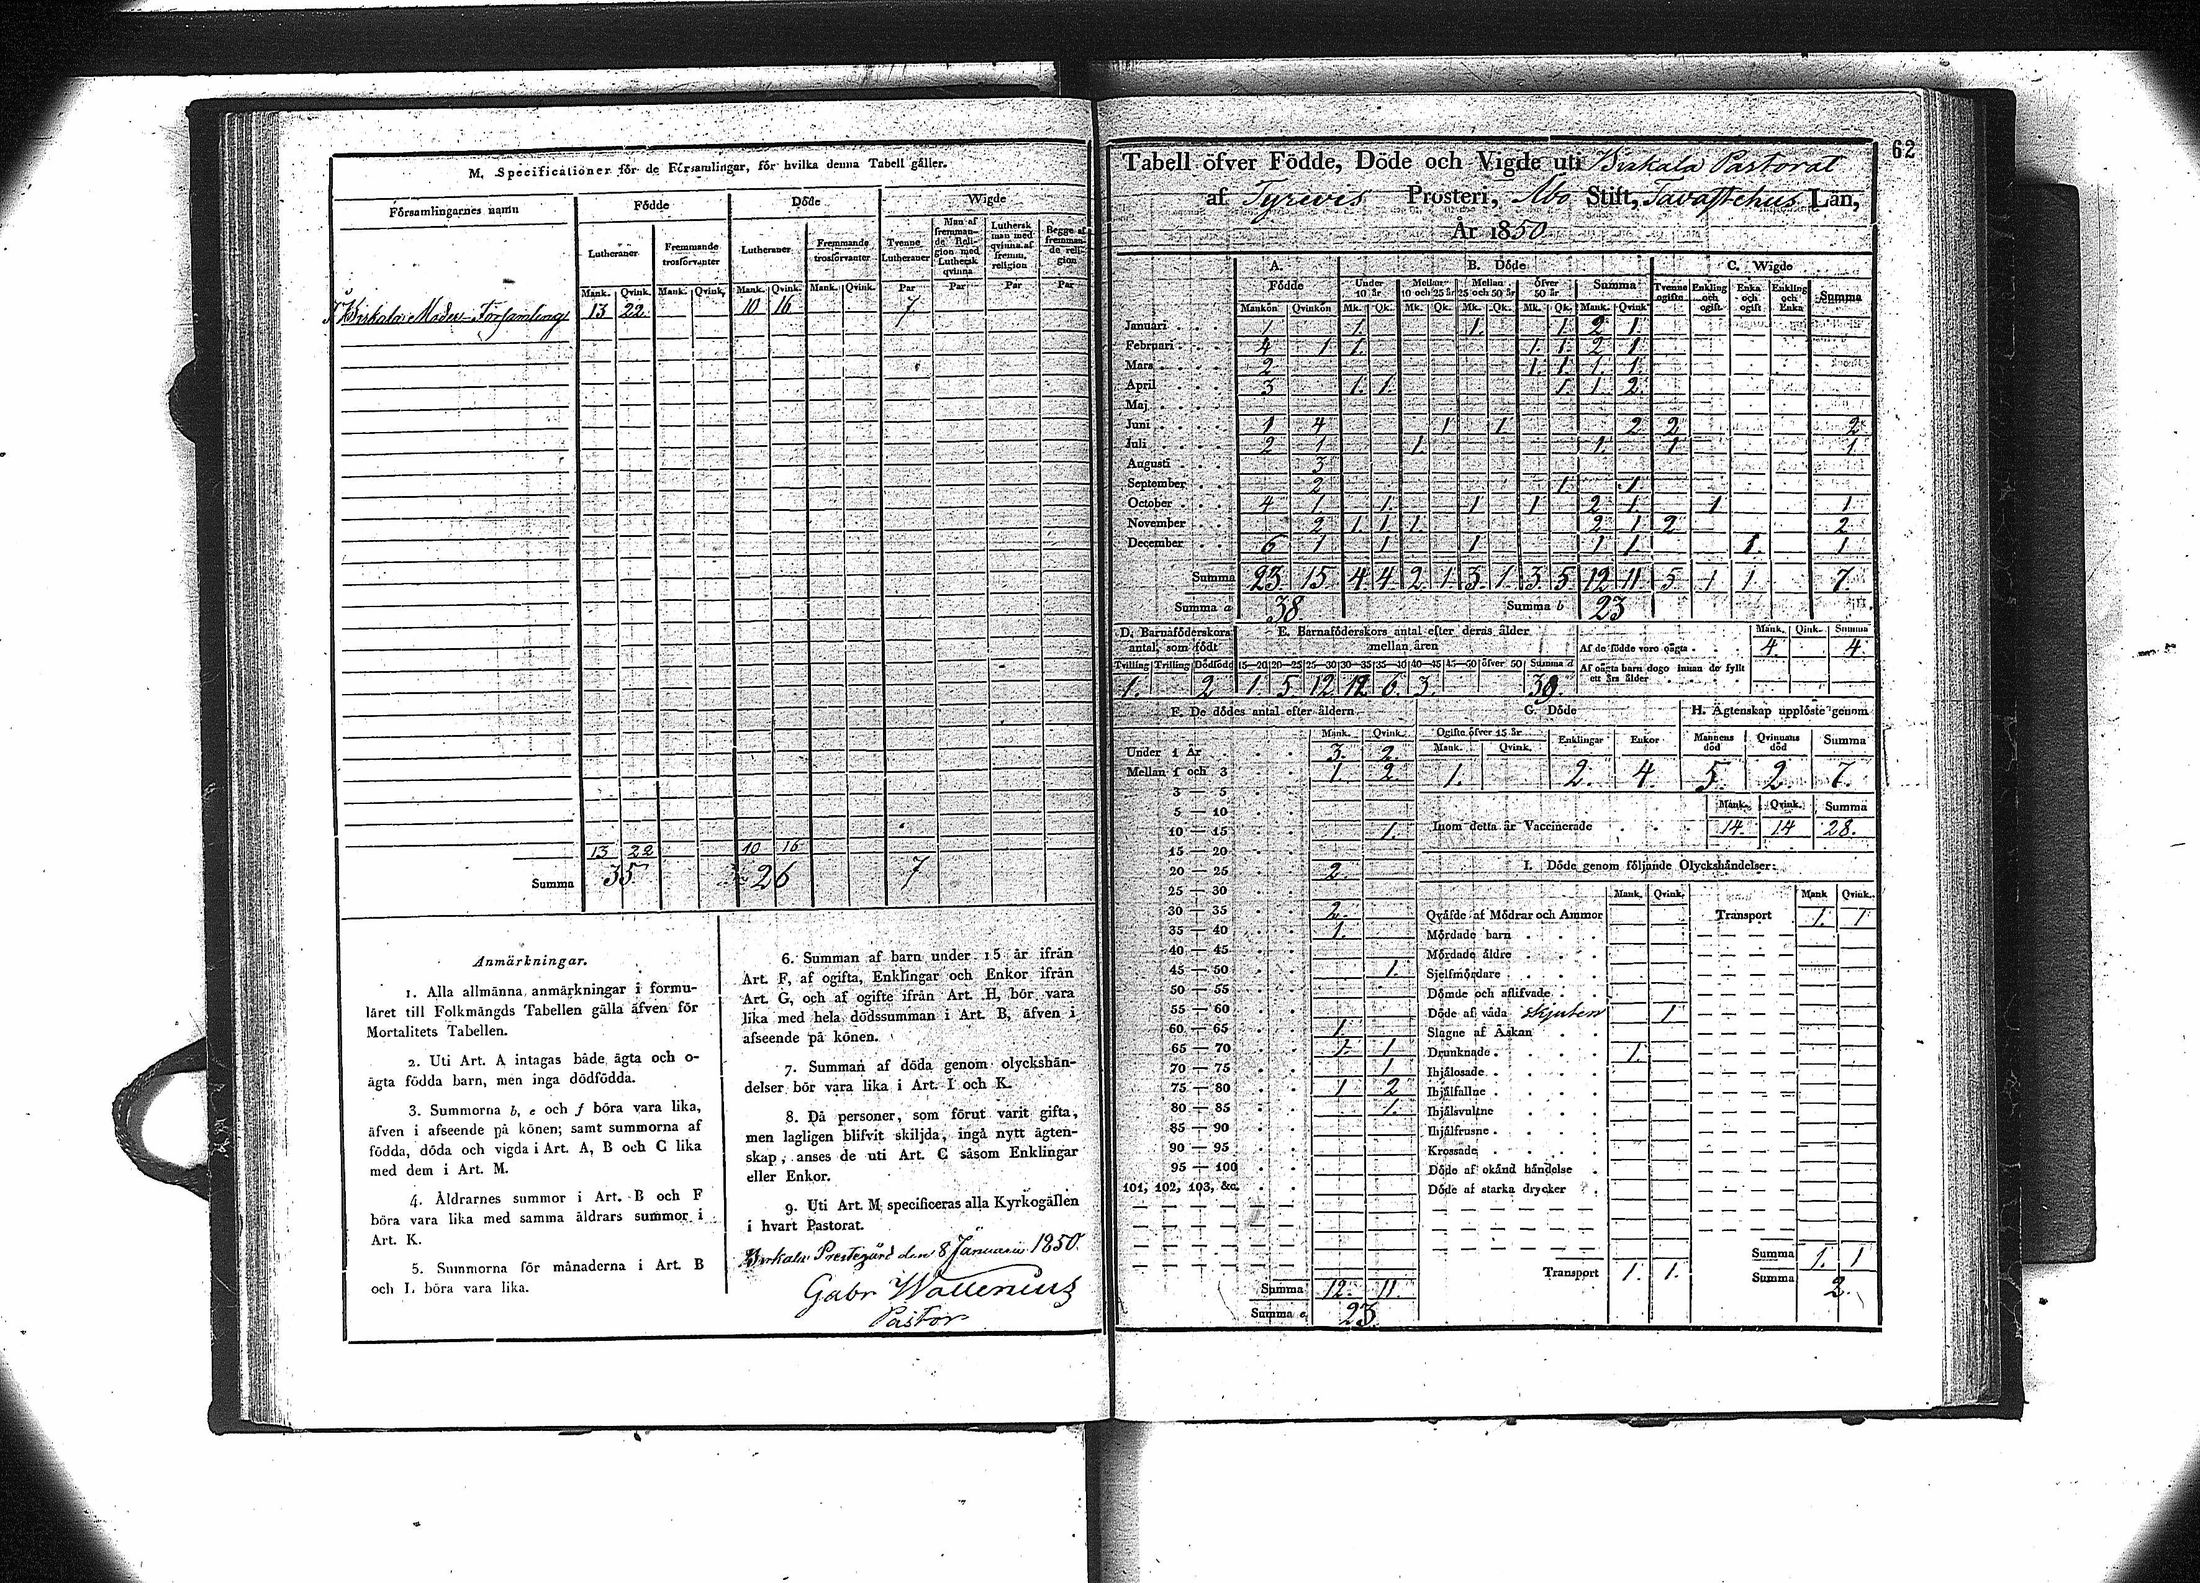 M. Specificationer för de Församlingar, för hvilka denna Tabell gäller.
Församlingarnes namn
Födde
Döde
Wigde
Lutheraner
Fremmande trosförvanter
Lutheraner
Fremmande trosförvanter
Tvenne Lutheraner
Man af fremmande Religion med Luthersk qvinna
Luthersk man med qvinna af fremm. religion
Begge af fremmande religion
Mank. Qvink. Mank. Qvink. Mank. Qvink. Mank. Qvink. Par Par Par Par
I Birkala Moder-Församling 13 22 10 16 7.
13 22 10 16
Summa 35 26 7
Anmärkningar.
1. Alla allmänna anmärkningar i formu-
läret till Folkmängds Tabellen gälla äfven för
Mortalitets Tabellen.
2. Uti Art. A intagas både ägta och o-
ägta födda barn, men inga dödfödda.
3. Summorna b, e och f böra vara lika,
äfven i afseende på könen; samt summorna af
födda, döda och vigda i Art. A, B och C lika
med dem i Art. M.
4. Åldrarnes summor i Art. B och F
böra vara lika med samma åldrars summor i
Art. K.
5. Summorna för månaderna i Art. B
och L böra vara lika.
6. Summan af barn under 15 år ifrån
Art. F, af ogifta, Enklingar och Enkor ifrån
Art. G, och af ogifte ifrån Art. H, bör vara
lika med hela dödssumman i Art. B, äfven i
afseende på könen.
7. Summan af döda genom olyckshän-
delser bör vara lika i Art. I och K.
8. Då personer, som förut varit gifta,
men lagligen blifvit skiljda, ingå nytt ägten-
skap, anses de uti Art. C såsom Enklingar
eller Enkor.
9. Uti Art. M specificeras alla Kyrkogällen
i hvart Pastorat.
Birkala Prestegård den 8 Januarii 1850.
Gabr Wallenius
Pastor
62
Tabell öfver Födde, Döde och Vigde uti Birkala Pastorat
af Tyrvis Prosteri, Åbo Stift, Tavastehus Län,
År 1850
A. Födde
B. Döde
C. Wigde
Under 10 år
Mellan 10 och 25 år
Mellan 25 och 50 år
öfver 50 år
Summa
Tvenne ogifte
Enkling och ogift
Enka och ogift
Enkling och Enka
Summa
Mankön Qvinkön Mk. Qk. Mk. Qk. Mk. Qk. Mk. Qk. Mank. Qvink
Januari 1. 1. 1. 1. 2 1.
Februari 4 1 1. 1. 1. 2 1
Mars 2 1. 1. 1. 1.
April 3 1. 1. 1. 1. 2.
Maj
Juni 1 4 1 1 2 2 2
Juli 2 1 1. 1. 1 1.
Augusti 3
September 2 1. 1.
October 4 1 1. 1 1 2 1. 1 1.
November 2 1 1 1 2 1 2 2
December 6 1 1 1 1 1 1. 1
Summa 23 15 4 4 2 1 3 1. 3 5 12 11 5 1 1 7.
Summa a 38 Summa b 23
D. Barnaföderskors antal, som födt
E. Barnaföderskors antal efter deras ålder mellan åren
Tvilling Trilling Dödfödd 15—20 20—25 25—30 30—35 35—40 40—45 45—50 öfver 50 Summa d
1. 2 1 5 12 12 6. 3. 39.
Mank. Qink. Summa
Af de födde voro oägta 4. 4.
Af oägta barn dogo innan de fyllt
ett års ålder
F. De dödes antal efter åldern
Mank. Qvink.
Under 1 År 3. 2.
Mellan 1 och 3 1. 2.
3 — 5
5 — 10
10 — 15 1.
15 — 20
20 — 25 2.
25 — 30
30 — 35 2.
35 — 40 1.
40 — 45
45 — 50 1.
50 — 55
55 — 60
60 — 65 1.
65 — 70 1. 1
70 — 75 1
75 — 80 1 2
80 — 85 1.
85 — 90
90 — 95
95 — 100
101, 102, 103, &c.
Summa 12. 11
Summa e 23.
G. Döde
Ogifte öfver 15 år
Mank. Qvink.
Enklingar
Enkor
1. 2. 4.
H. Ägtenskap upplöste genom
Mannens död
Qvinnans död
Summa
5. 2. 7.
Mank. Qvink. Summa
Inom detta år Vaccinerade 14. 14 28.
I. Döde genom följande Olyckshändelser:
Mank. Qvink. Mank Qvink.
Qväfde af Mödrar och Ammor
Mördade barn
Mördade äldre
Sjelfmördare
Dömde och aflifvade
Döde af våda skjuten 1
Slagne af Åskan
Drunknade 1.
Ihjälosade
Ihjälfallne
Ihjälsvultne
Ihjälfrusne
Krossade
Döde af okänd händelse
Döde af starka drycker
Transport 1. 1.
Transport 1. 1
Summa 1. 1
Summa 2.